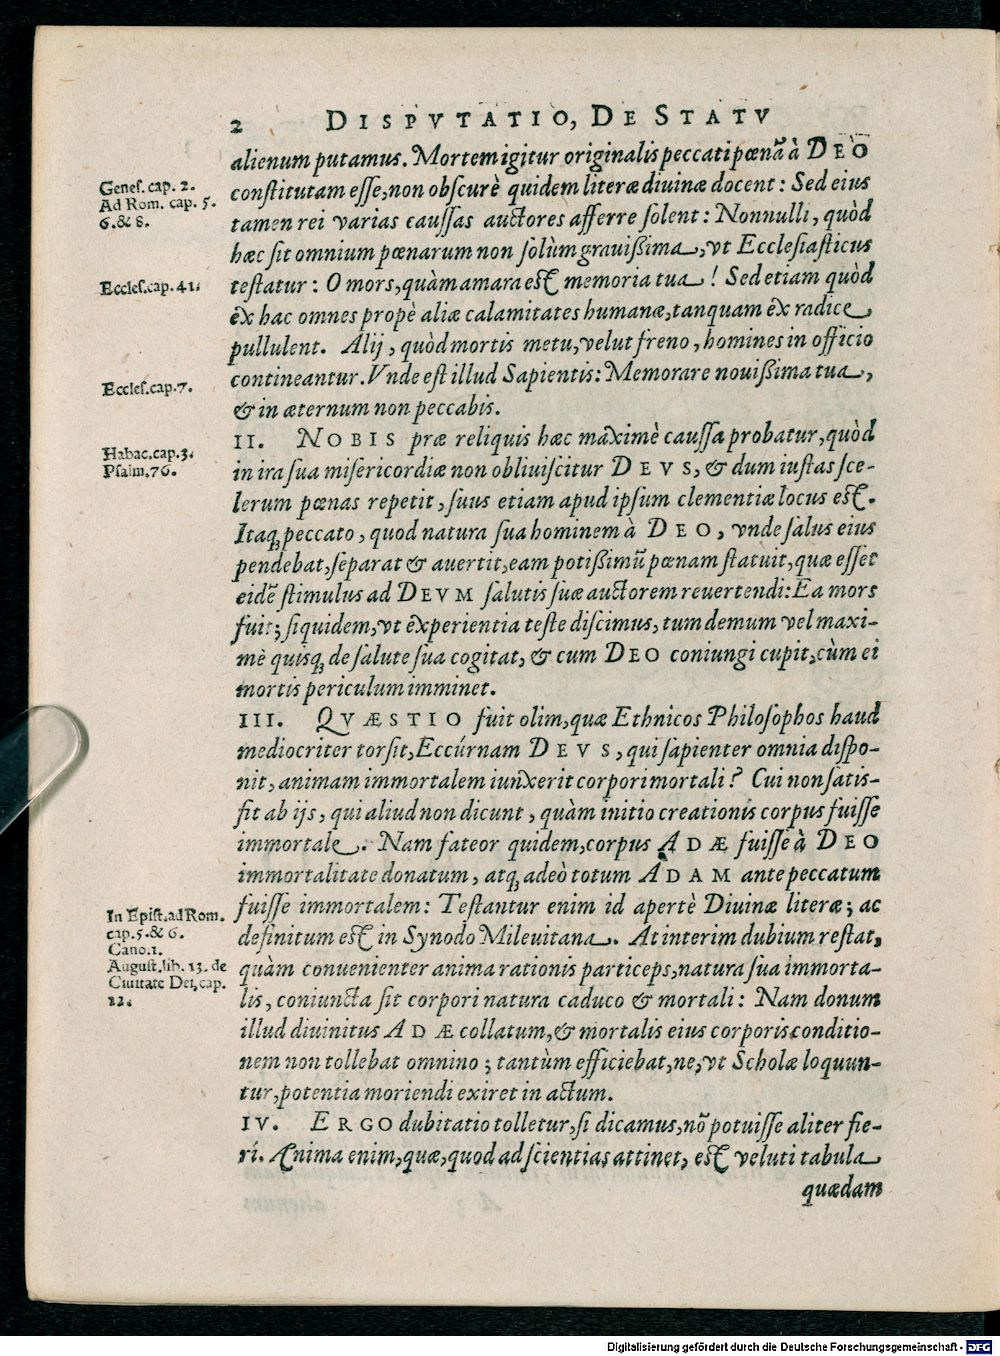 2 DISPVTATIO, DE STATV
alienum putamus. Mortem igitur originalis peccati pœnā à DEO
constitutam esse, non obscurè quidem literæ diuinæ docent: Sed eius
tamen rei varias caussas auctores afferre solent: Nonnulli, quòd
hæc sit omnium pœnarum non solùm grauißima, vt Ecclesiasticus
testatur: O mors, quàm amara est memoria tua! Sed etiam quòd
ex hac omnes propè aliæ calamitates humanæ, tanquam ex radice
pullulent. Alij, quòd mortis metu, velut freno, homines in officio
contineantur. Vnde est illud Sapientis: Memorare nouißima tua,
& in æternum non peccabis.
II. NOBIS præ reliquis hæc maximè caussa probatur, quòd
in ira sua misericordiæ non obliuiscitur DEVS, & dum iustas sce-
lerum pœnas repetit, suus etiam apud ipsum clementiæ locus est.
Itaq; peccato, quod natura sua hominem à DEO, vnde salus eius
pendebat, separat & auertit, eam potißimū pœnam statuit, quæ esset
eidē stimulus ad DEVM salutis suæ auctorem reuertendi: Ea mors
fuit; siquidem, vt experientia teste discimus, tum demum vel maxi-
mè quisq; de salute sua cogitat, & cum DEO coniungi cupit, cùm ei
mortis periculum imminet.
III. QVÆSTIO fuit olim, quæ Ethnicos Philosophos haud
mediocriter torsit, Eccúrnam DEVS, qui sapienter omnia dispo-
nit, animam immortalem iunxerit corpori mortali? Cui non satis-
fit ab ijs, qui aliud non dicunt, quàm initio creationis corpus fuisse
immortale. Nam fateor quidem, corpus ADÆ fuisse à DEO
immortalitate donatum, atq; adeò totum ADAM ante peccatum
fuisse immortalem: Testantur enim id apertè Diuinæ literæ; ac
definitum est in Synodo Mileuitana. At interim dubium restat,
quàm conuenienter anima rationis particeps, natura sua immorta-
lis, coniuncta sit corpori natura caduco & mortali: Nam donum
illud diuinitus ADÆ collatum, & mortalis eius corporis conditio-
nem non tollebat omnino; tantùm efficiebat, ne, vt Scholæ loquun-
tur, potentia moriendi exiret in actum.
IV. ERGO dubitatio tolletur, si dicamus, nō potuisse aliter fie-
ri. Anima enim, quæ, quod ad scientias attinet, est veluti tabula
quædam
Genes. cap. 2.
Ad Rom. cap. 5.
6. & 8.
Eccles. cap. 41.
Eccles. cap. 7.
Habac. cap. 3.
Psalm. 76.
In Epist. ad Rom.
cap. 5. & 6.
Cano. 1.
August. lib. 13. de
Ciuitate Dei, cap.
12.
Digitalisierung gefördert durch die Deutsche Forschungsgemeinschaft - DFG